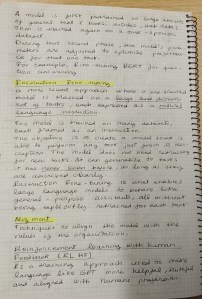 A model is first pretrained on large amounts
of general data ( books, articles, web data)
then is trained again on a task - specific
dataset.
During that second phase, the model's para-
meters are adjusted to optimize performan
ce for that one task.
For example, Fine tuning BERT for ques-
tion answering.
Instruction Fine tuning
A more recent approach where a pre trained
model is trained on a large and diverse
set of tasks, each expressed as a natural
language instruction
The model is trained on many datasets,
each framed as an instruction.
The objective is to create a model that is
able to perform any task just given a
The model does not need retraining
for new tasks. It can generalize to tasks
it has never seen before as long as they
are described clearly.
Instruction Fine tuning is what enables
large language models to behave like
general - purpose assistants, all without
being explicitly retrained for each task
Alignment
Techniques to align the model with the
values of the organization.
Reinforcement learning with human
Feedback (RLHF)
Its a training approach used to make
language like GPT more helpful, truthful
and aligned with human preferences